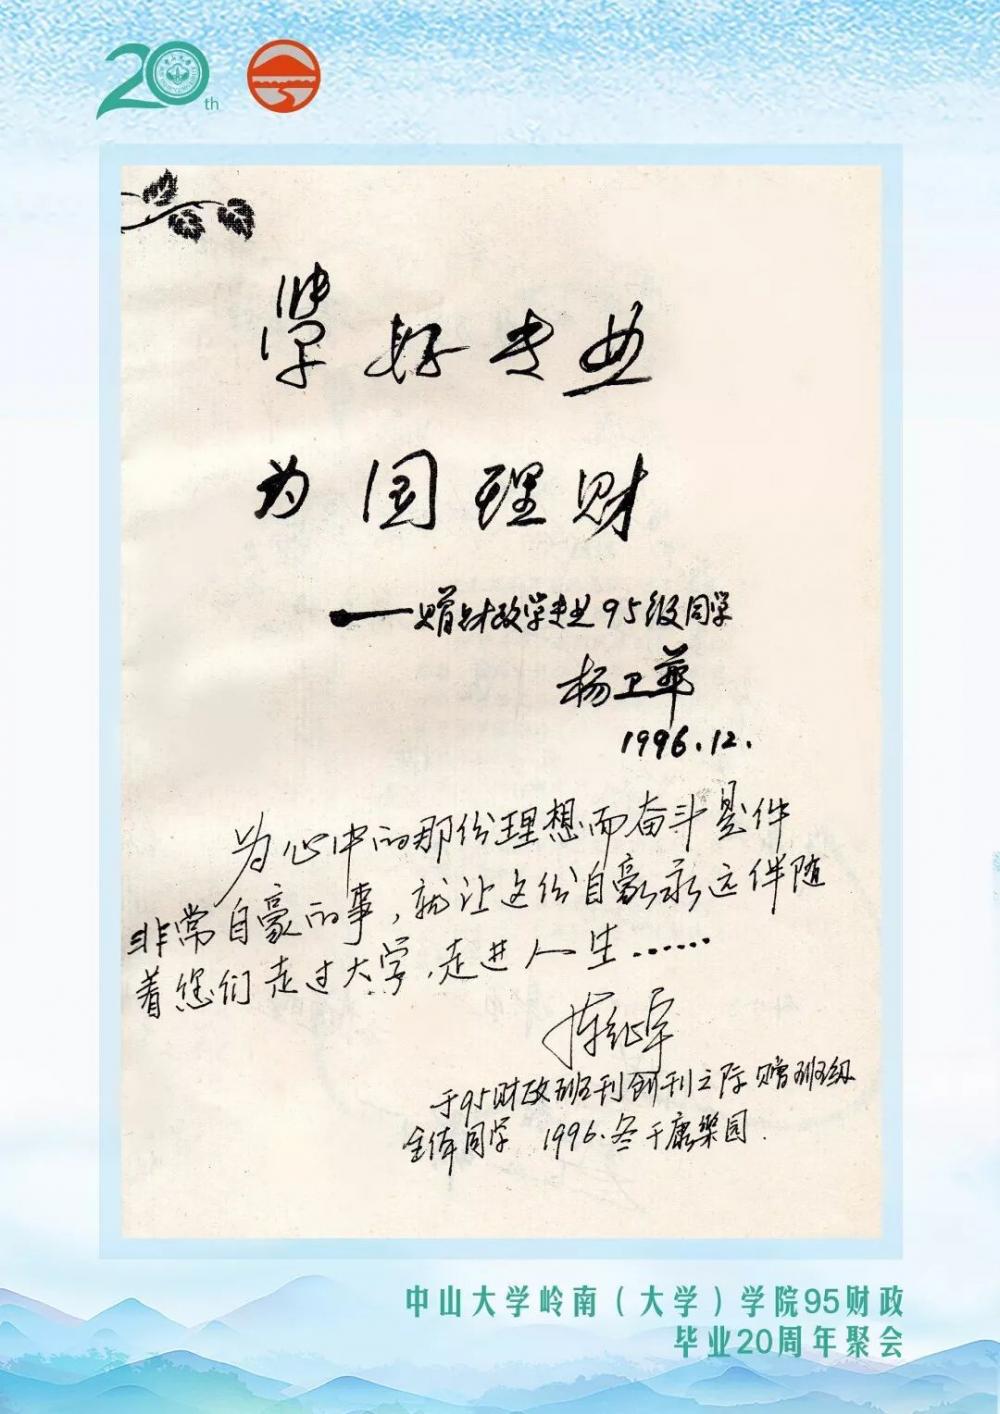 20th
學好专业
为国理财
——赠财政学专业95级同学
杨卫华
1996.12.
为心中的那份理想而奋斗是件
非常自豪的事,就让这份自豪永远伴随
着您们走过大学,走进人生……
于95财政班刊创刊之际赠班级
全体同学 1996.冬于康樂园.
中山大学岭南（大学）学院95财政
毕业20周年聚会